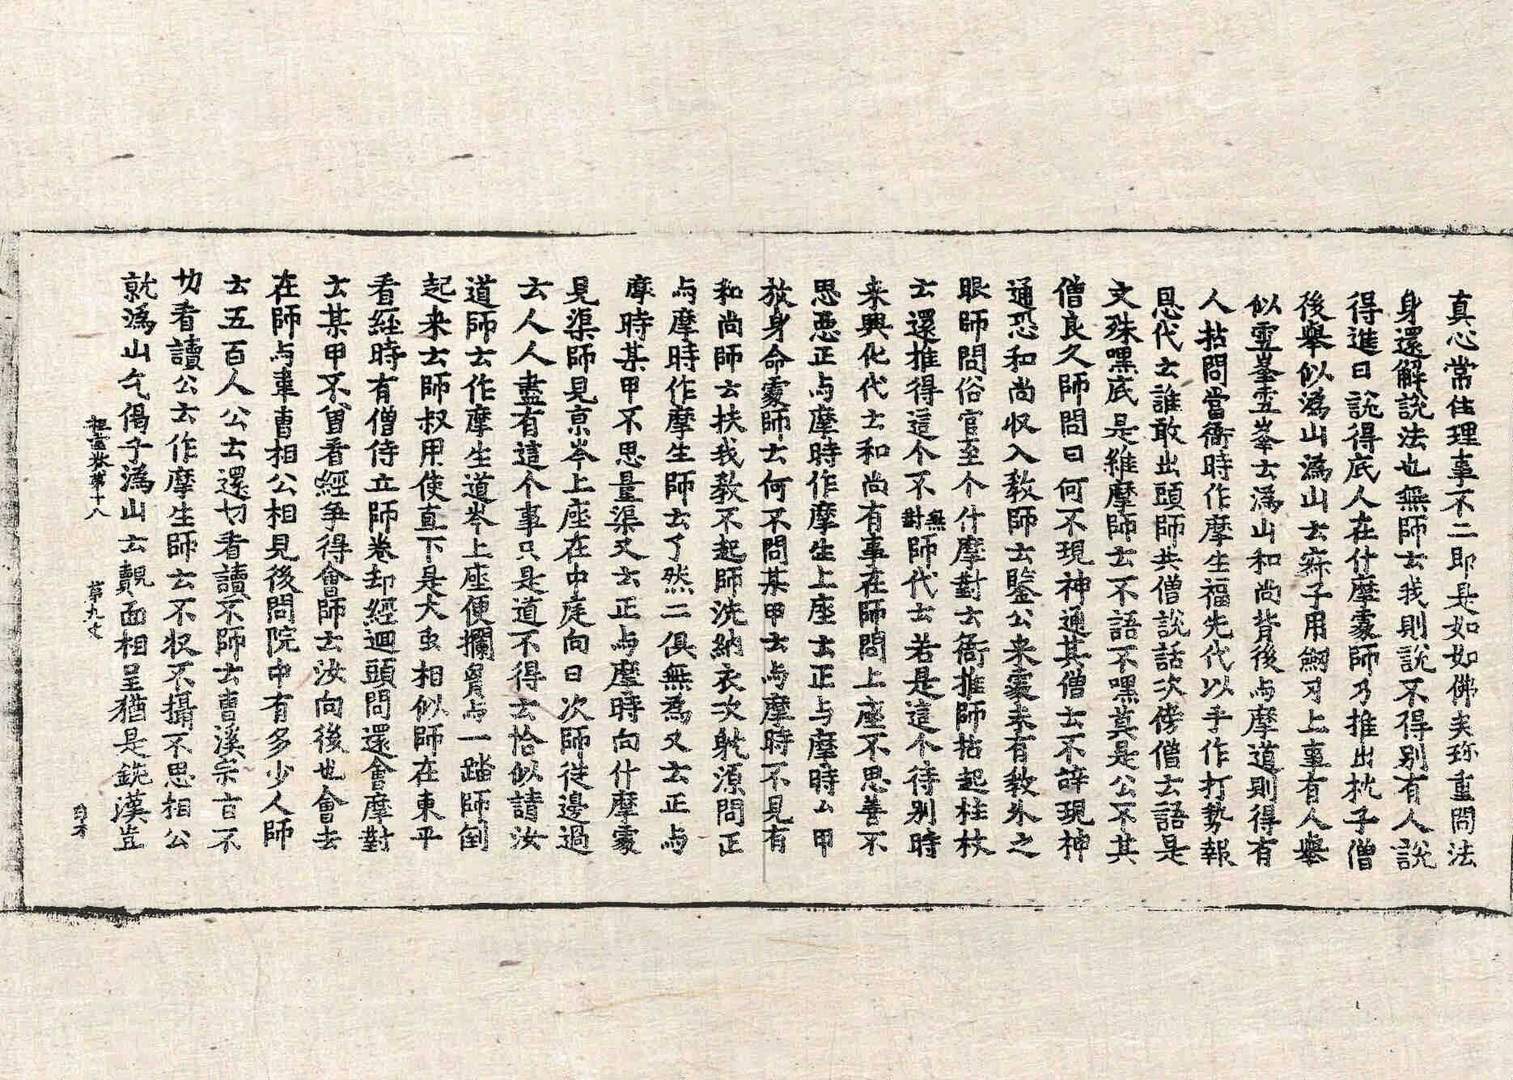 真心常住理事不二即是如如佛矣珎重問法
身還解說法也無師云我則說不得別有人說
得進曰說得底人在什摩處師乃推出枕子僧
後舉似為山為山云寂子用劒刃上事有人舉
似雪峯雪峯云為山和尚背後与摩道則得有
人拈問當衙時作摩生福先代以手作打勢報
恩代云誰敢出頭師共僧說話次傍僧云語是
文殊嘿底是維摩師云不語不嘿莫是公不其
僧良久師問曰何不現神通其僧云不辞現神
通恐和尚収入教師云鑒公来處未有教外之
眼師問俗官至个什摩對云衙推師拈起柱杖
云還推得這个不無對師代云若是這个待別時
来興化代云和尚有事在師問上座不思善不
思惡正与摩時作摩生上座云正与摩時厶甲
放身命處師云何不問某甲云与摩時不見有
和尚師云扶我教不起師洗納衣次躭源問正
与摩時作摩生師云了然二俱無為又云正与
摩時某甲不思量渠又云正与摩時向什摩處
見渠師見京岑上座在中庭向日次師從邊過
云人人盡有這个事只是道不得云恰似請汝
道師云作摩生道岑上座便攔胷与一踏師倒
起来云師叔用使直下是大虫相似師在東平
看經時有僧侍立師卷却經迴頭問還會摩對
云某甲不曾看經爭得會師云汝向後也會去
在師与韋曹相公相見後問院中有多少人師
云五百人公云還切看讀不師云曹溪宗旨不
切看讀公云作摩生師云不収不攝不思相公
就為山乞偈子為山云覿面相呈猶是鈍漢豈
祖堂卷第十八 第九丈